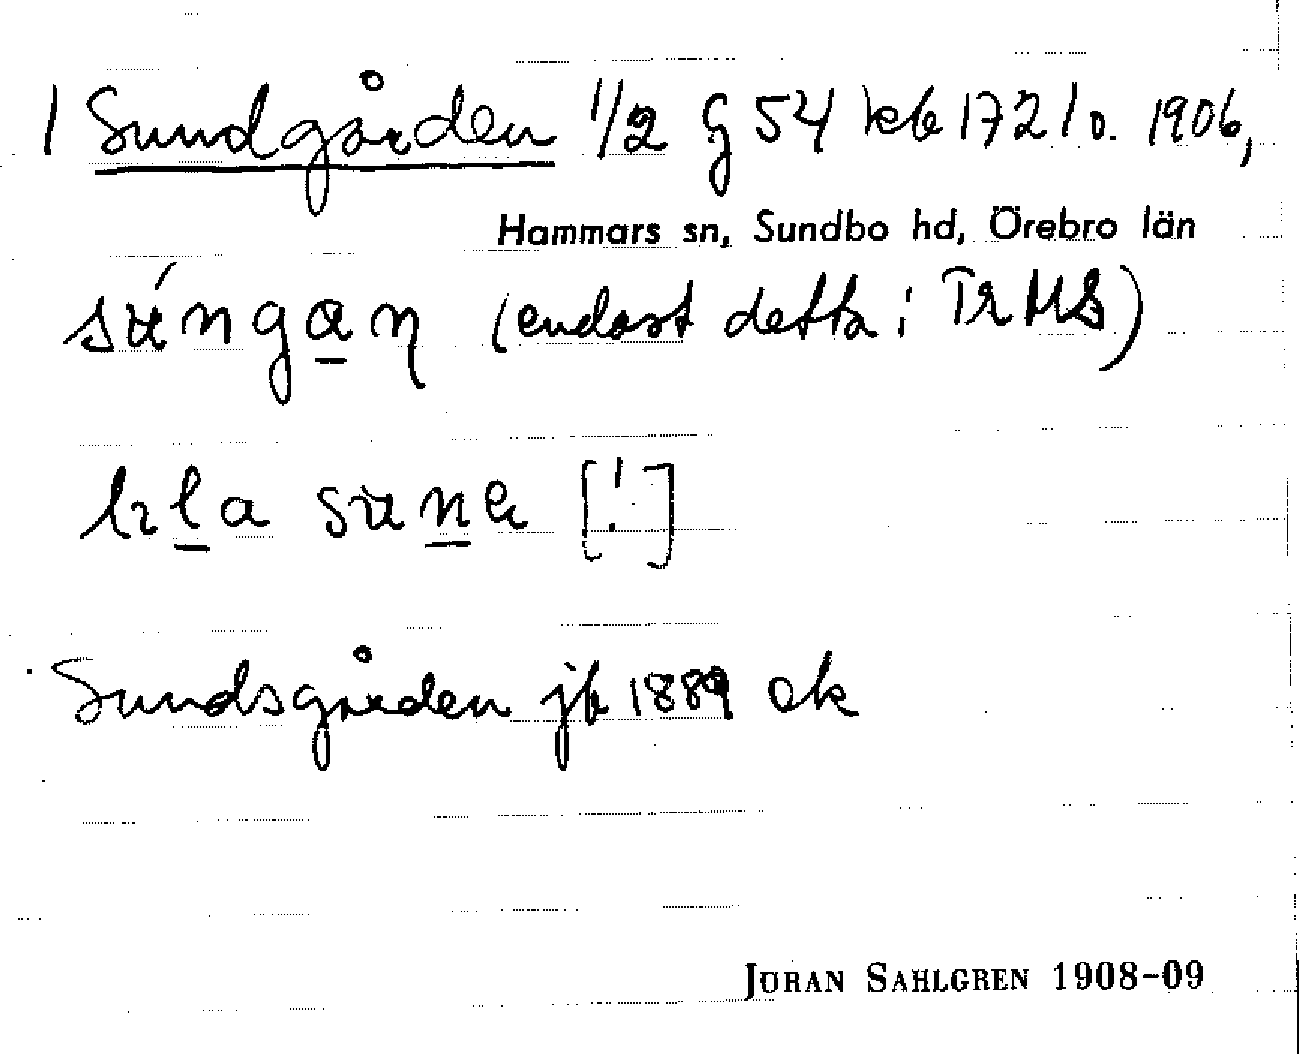 1 Sundgården 1/2 G 54 keb 1721 o. 1906,
Hammars sn, Sundbo hd, Örebro län
súngan (endast detta i TrMS)
lıla sune [!]
Sundsgården jb 1889 ek
JÖRAN SAHLGREN 1908-09